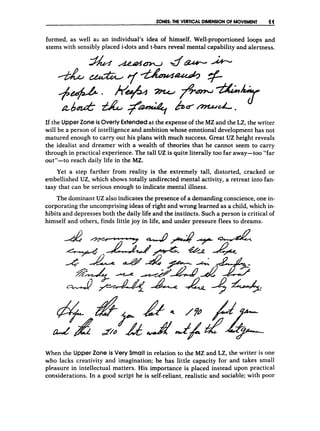 ZONES: THE VERTICAL DIMENSION OF MOVEMENT 11
formed, as well as an individual's idea of himself. Well-proportioned loops and
stems with sensibly placed i-dots and t-bars reveal mental capability and alertness.
This season I am in
the center of thousands of
people. Keeps me from thinking
about the family too much.
If the Upper Zone is Overly Extended at the expense of the MZ and the LZ, the writer
will be a person of intelligence and ambition whose emotional development has not
matured enough to carry out his plans with much success. Great UZ height reveals
the idealist and dreamer with a wealth of theories that he cannot seem to carry
through in practical experience. The tall UZ is quite literally too far away—too "far
out"—to reach daily life in the MZ.
Yet a step farther from reality is the extremely tall, distorted, cracked or
embellished UZ, which shows totally undirected mental activity, a retreat into fan-
tasy that can be serious enough to indicate mental illness.
The dominant UZ also indicates the presence of a demanding conscience, one in-
corporating the uncomprising ideas of right and wrong learned as a child, which in-
hibits and depresses both the daily life and the instincts. Such a person is critical of
himself and others, finds little joy in life, and under pressure flees to dreams.
the and
all the in
that
and
When the Upper Zone is Very Small in relation to the MZ and LZ, the writer is one
who lacks creativity and imagination; he has little capacity for and takes small
pleasure in intellectual matters. His importance is placed instead upon practical
considerations. In a good script he is self-reliant, realistic and sociable; with poor